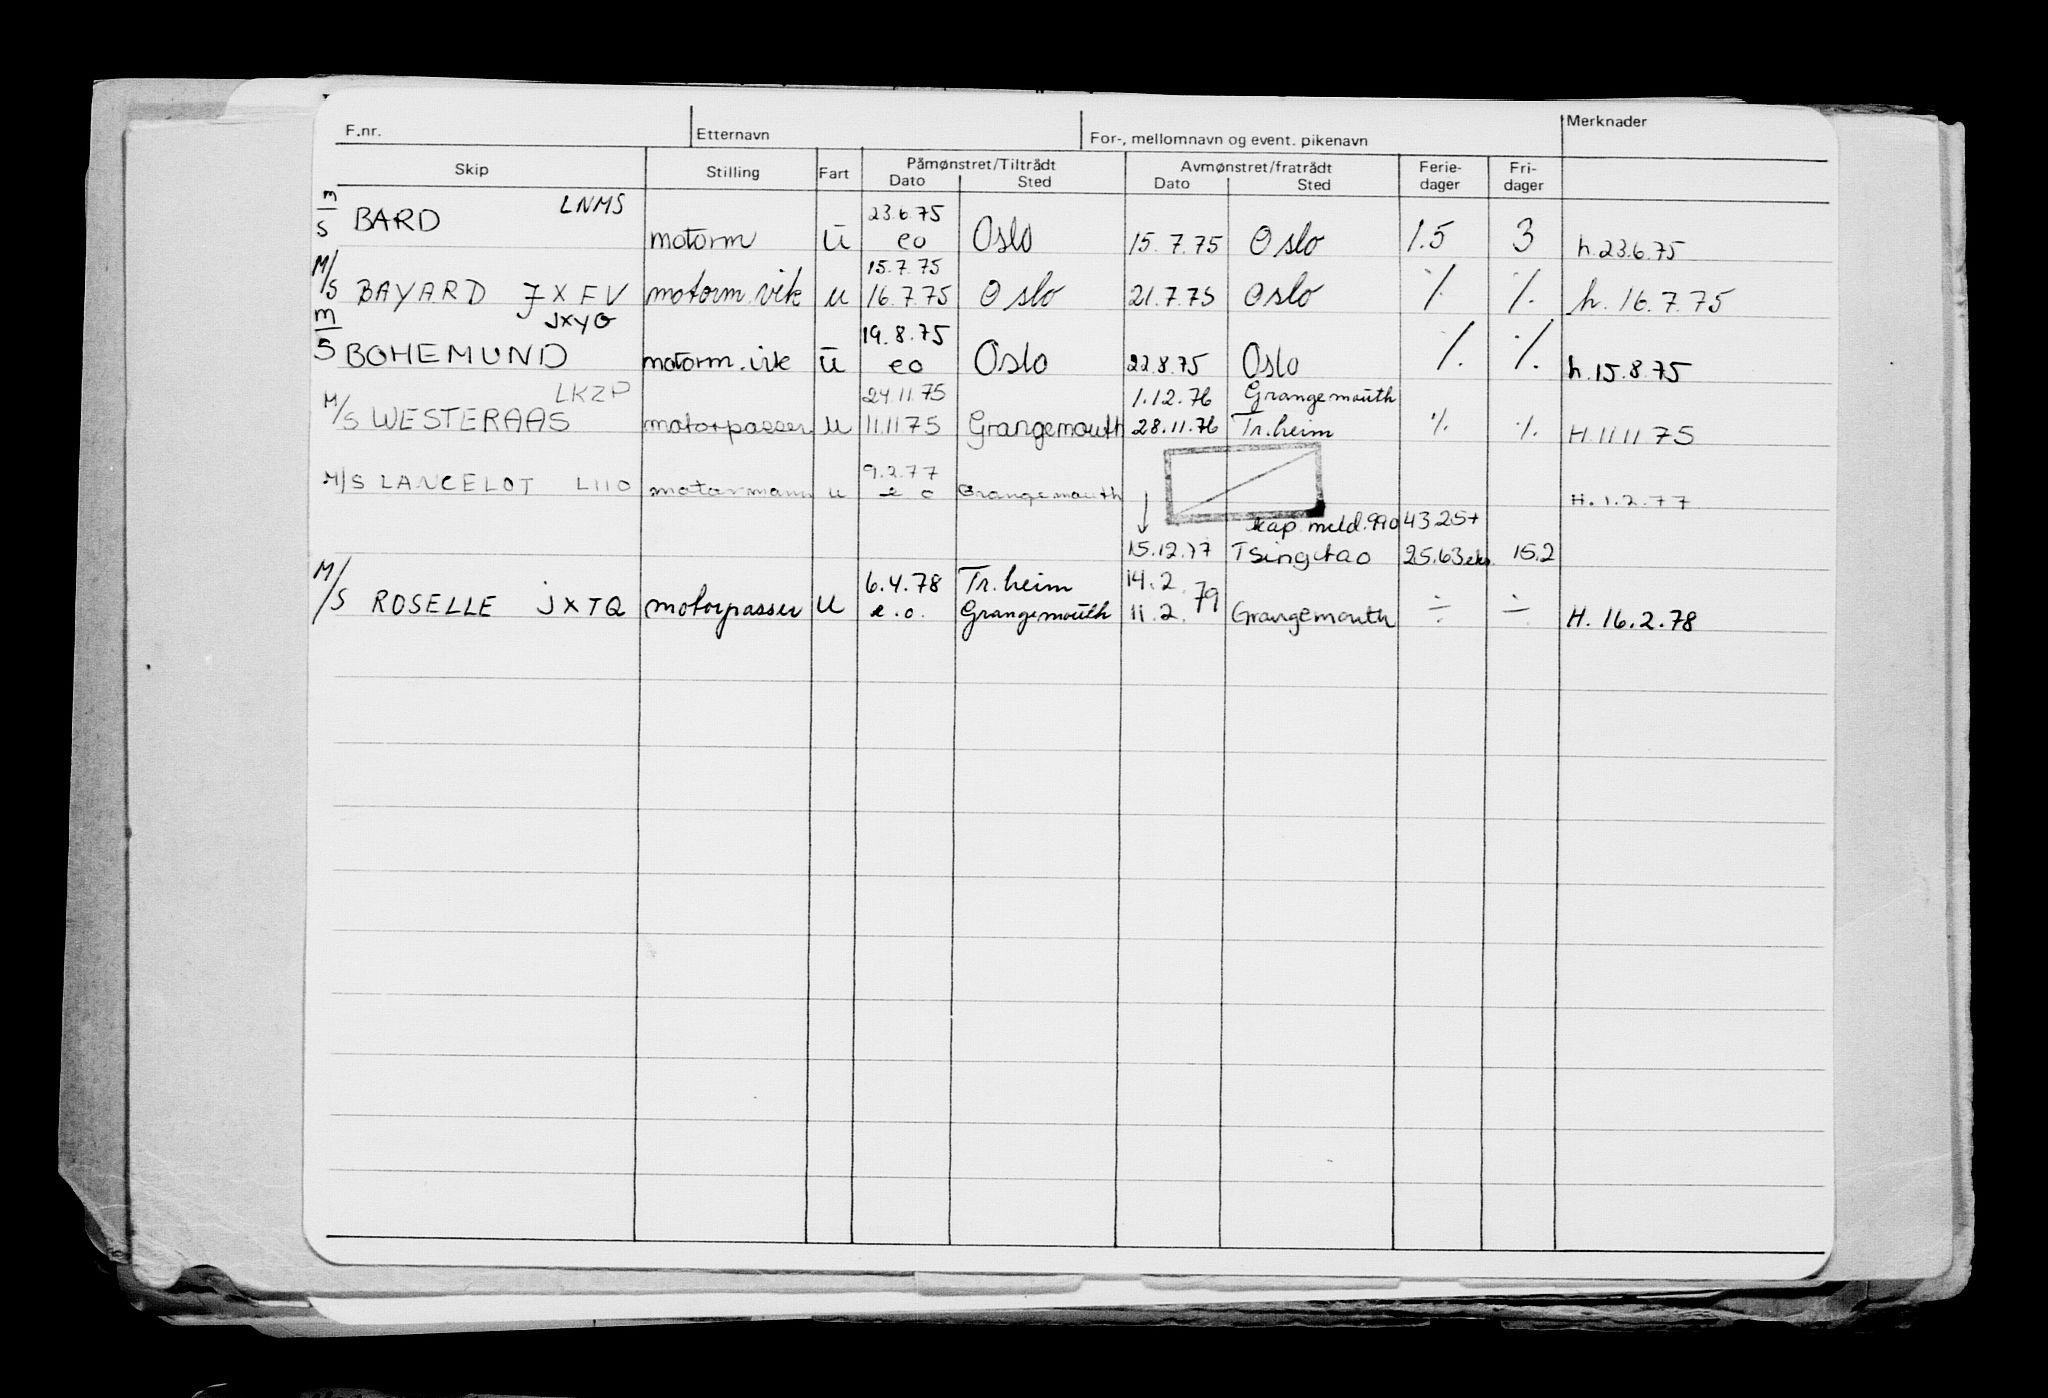 F.nr. Etternavn For-, mellomnavn og event. pikenavn Merknader
Skip Stilling Fart Påmønstret/Tiltrådt Avmønstret/fratrådt Ferie- Fri-
Dato Sted Dato Sted dager dager
M/S BARD LNMS motorm u 23.6.75 eo Oslo 15.7.75 Oslo 1.5 3 h.23.6.75
15.7.75
M/S BAYARD JXFV motorm.vik u 16.7.75 Oslo 21.7.75 Oslo % % h.16.7.75
JXYG 19.8.75
M/S BOHEMUND motorm.vik u eo Oslo 22.8.75 Oslo % % h.15.8.75
LKZP 24.11.75 1.12.76 Grangemouth
M/S WESTERAAS motorpasser u 11.11 75 Grangemouth 28.11.76 Tr.heim % % H.11 11 75
9.2.77
M/S LANCELOT motormann u e o Grangemouth H.1.2.77
kap. meld. 43.25+
15.12.77 Tsingtao 25.63 eks. 15.2
6.4.78 Tr.heim 14.2.79
M/S ROSELLE JXTQ motorpasser u e.o. Grangemouth 11.2. Grangemouth ÷ ÷ H. 16.2.78